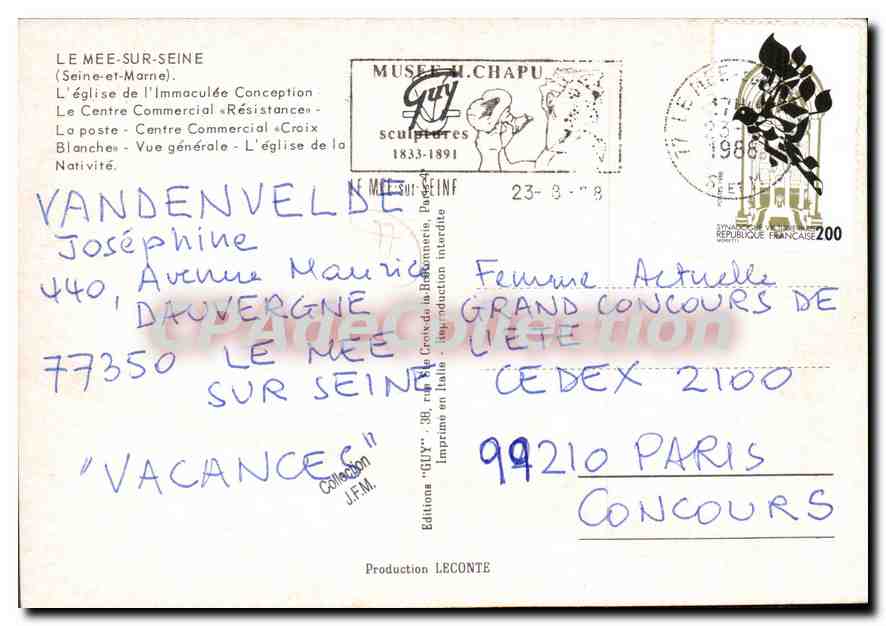 LE MEE-SUR-SEINE
(Seine-et-Marne).
L'église de l'Immaculée Conception
Le Centre Commercial «Résistance» -
La poste - Centre Commercial «Croix
Blanche» - Vue générale - L'église de la
Nativité.
MUSEE H.CHAPU
Guy
sculptures
1833-1891
LE MEE-sur-SEINE
23-8-88
77 LE MEE
1988
SYNAGOGUE
REPUBLIQUE FRANÇAISE 2,00
VANDENVELDE
Joséphine
440, Avenue Maurice
DAUVERGNE
77350 LE MEE
SUR SEINE
"VACANCES"
Collection
J.F.M.
Editions "GUY" - 38, rue Ste Croix-de-la-Bretonnerie, Paris-4e
Imprimé en Italie - Reproduction interdite
Femme Actuelle
GRAND CONCOURS DE
L'ETE
CEDEX 2100
99210 PARIS
CONCOURS
CPAdeCollection
Production LECONTE